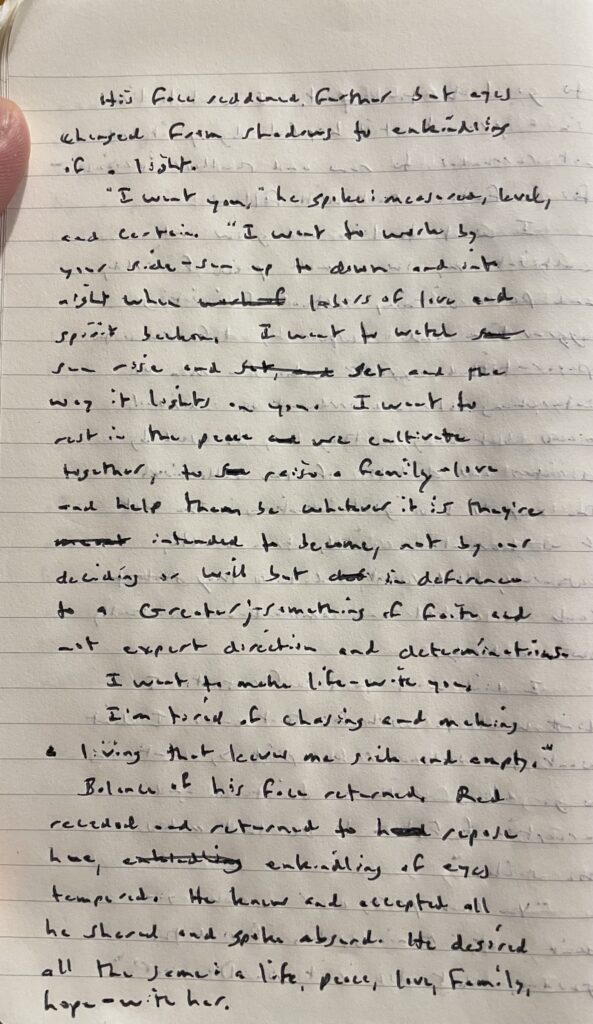 His face reddened further but eyes
changed from shadows to enkindling
of a light.
"I want you," he spoke: measured, level,
and certain. "I want to work by
your side-sun up to down and into
night when labors of love and
spirit beckon. I want to watch
sun rise and set and the
way it lights on you. I want to
rest in the peace we cultivate
together, to raise a family-love
and help them be whatever it is they're
intended to become, not by our
deciding or will but in deference
to a Greater;-something of faith and
not expert direction and determinations.
I want to make life-with you.
I'm tired of chasing and making
a living that leaves me sick and empty."
Balance of his face returned. Red
receded and returned to repose
hue, enkindling of eyes
tempered. He knew and accepted all
he shared and spoke absurd. He desired
all the same: a life, peace, love, family,
hope-with her.